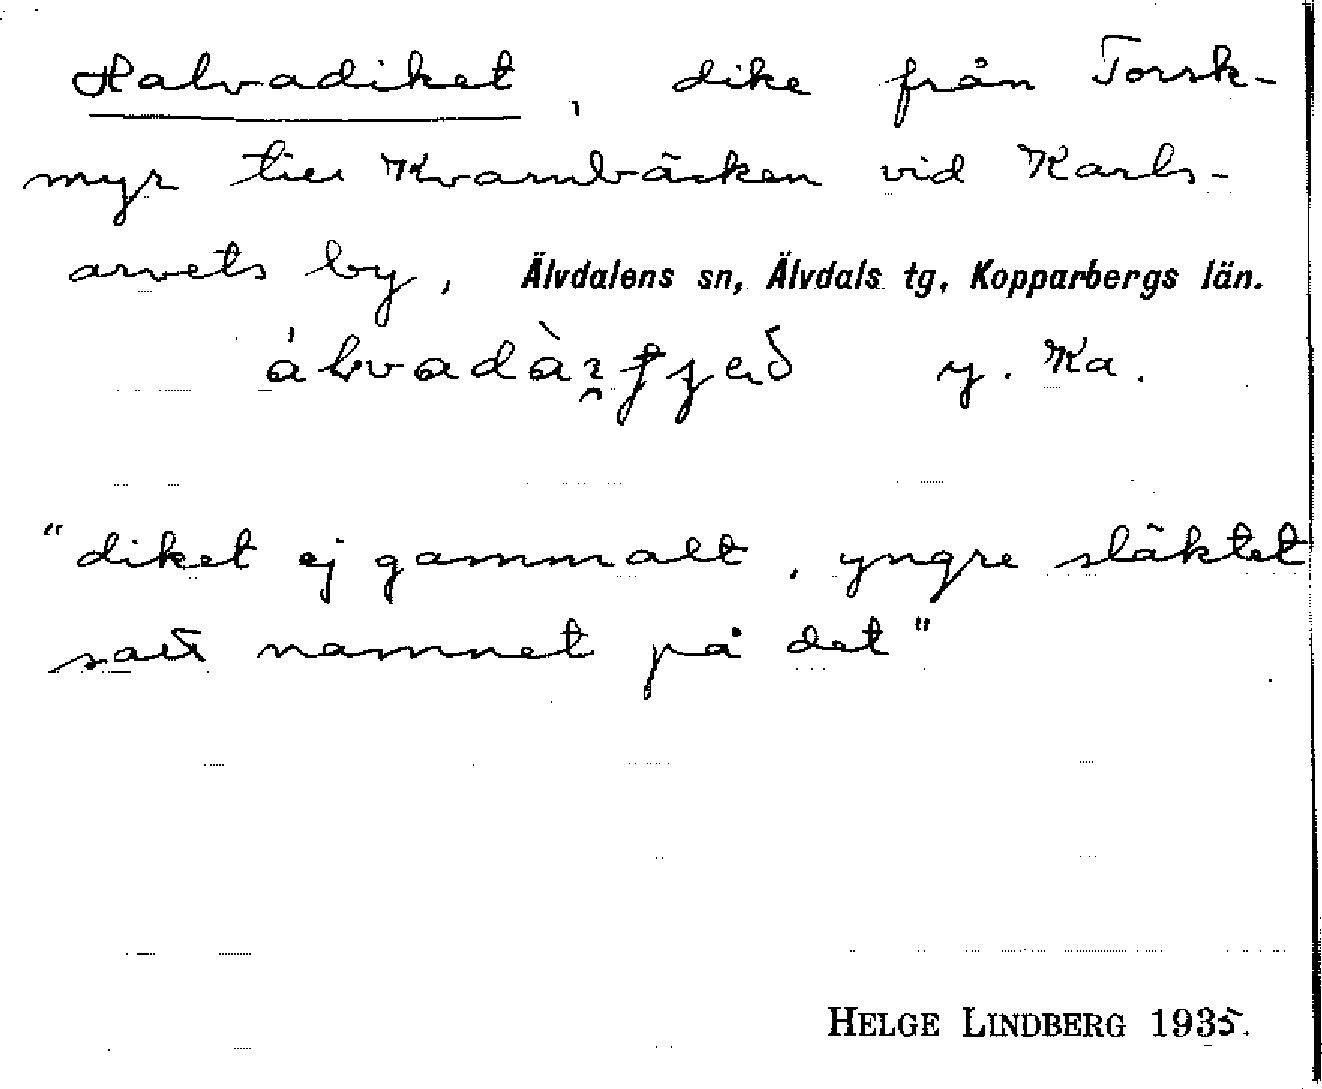 Halvadiket, dike från Torsk-
myr till Kvarnbäcken vid Karls-
arvets by, Älvdalens sn, Älvdals tg, Kopparbergs län.
y. Ka.
"diket ej gammalt, yngre släktet
satt namnet på det"
HELGE LINDBERG 1935.